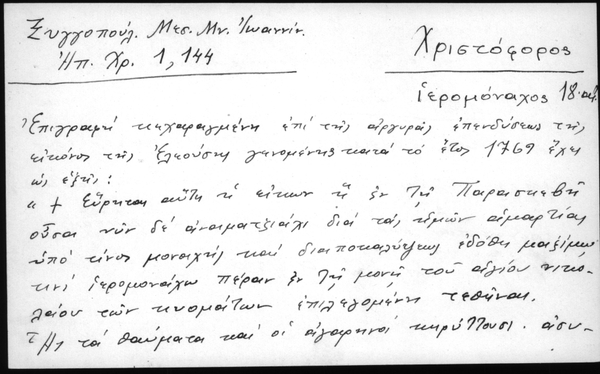 Ξυγγοπούλ. Μεσ. Μν. Ἰωαννίν.
Ἠπ. Χρ. 1, 144
Χριστόφορος
ἱερομόναχος 18. αἰ.
Ἐπιγραφή κεχαραγμένη ἐπί τῆς ἀργυρᾶς ἐπενδύσεως τῆς
εἰκόνος τῆς Ἐλεούσης γενομένης κατά τό ἔτος 1769 ἔχει
ὡς ἑξῆς:
" + Εὕρηται αὕτη ἡ εἰκών ἡ ἐν τῇ Παρασκεβῆ
οὖσα νῦν δέ διά τάς ἡμῶν ἁμαρτίας
ὑπό τινος μοναχῆς καί διαποκαλύψεως ἐδόθη μαξίμω
τινί ἱερομονάχω πέραν ἐν τῇ μονῇ τοῦ ἁγίου νικο-
λάου τῶν ἐπιλεγομένη τεθῆναι.
Ἧς τά θαύματα καί οἱ ἀγαρηνοί κηρύττουσι. ἀσυ-